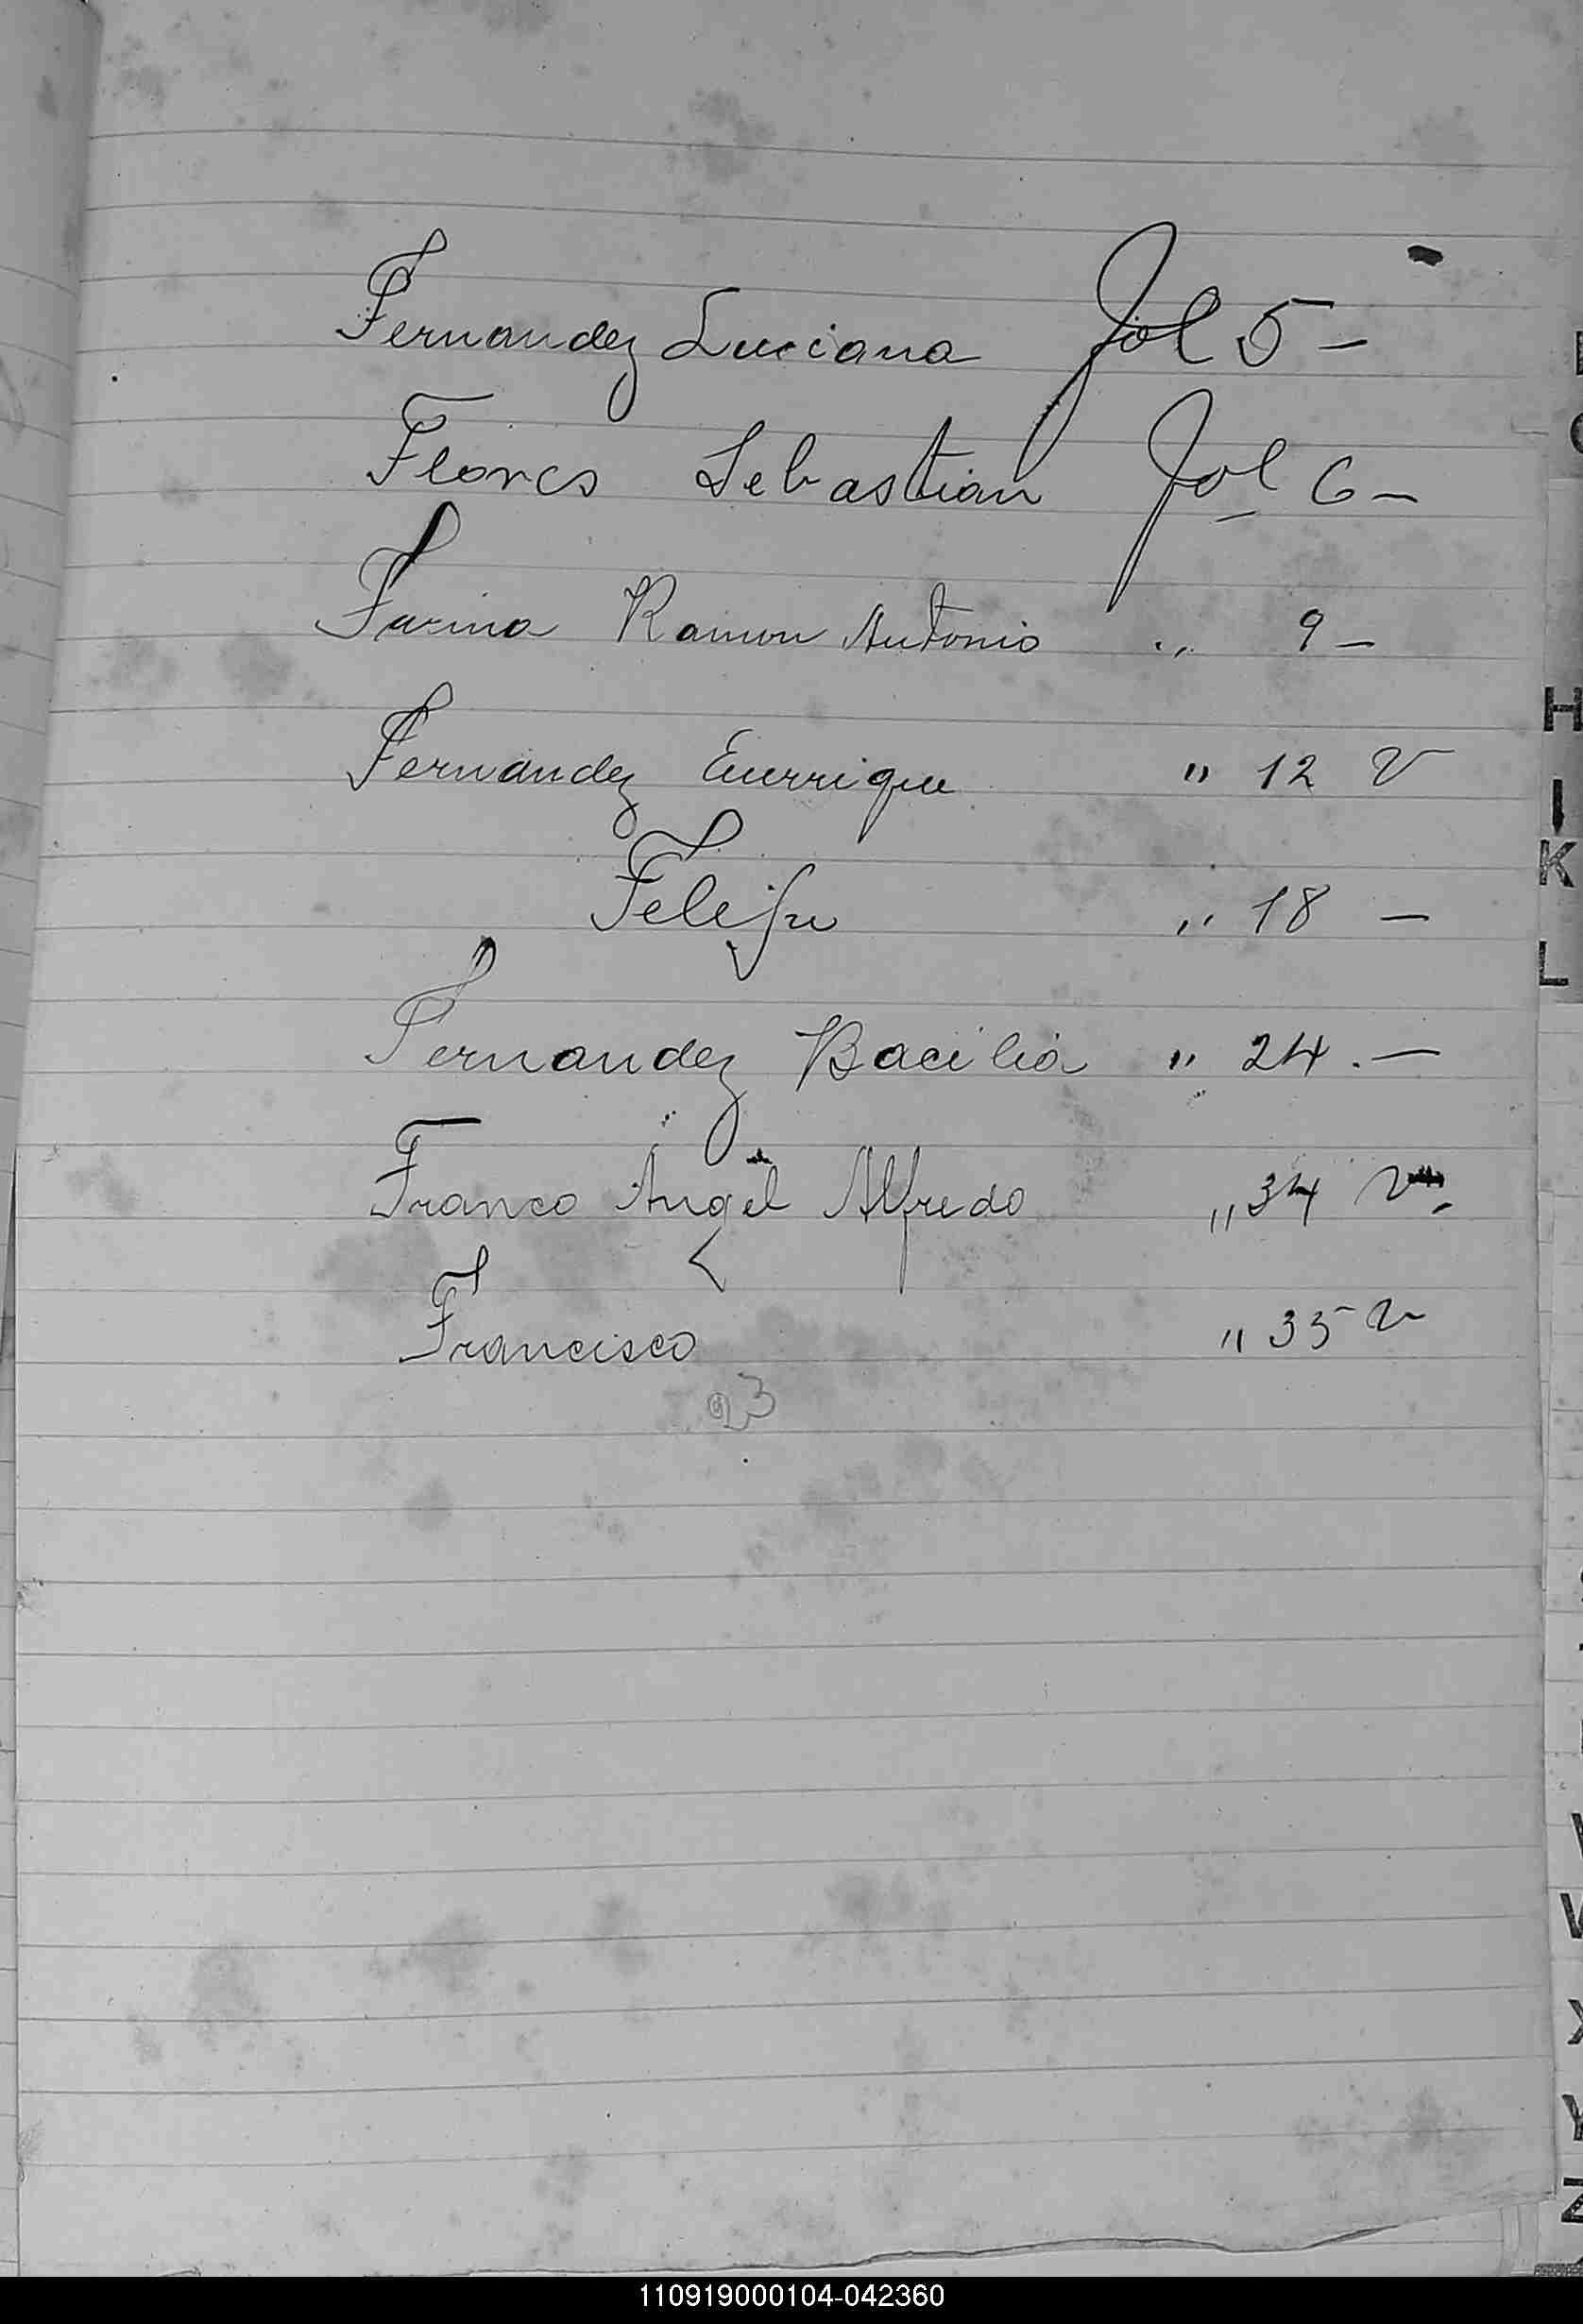 Fernandez Luciana Fol 5 -
Flores Sebastian Fol 6 -
Farina Ramon Antonio " 9 -
Fernandez Enrrique " 12 V
Felipe " 18 -
Fernandez Bacilia " 24. -
Franco Angel Alfredo " 34 V
Francisco " 35 V
23
H
I
K
L
X
Y
Z
110919000104-042360